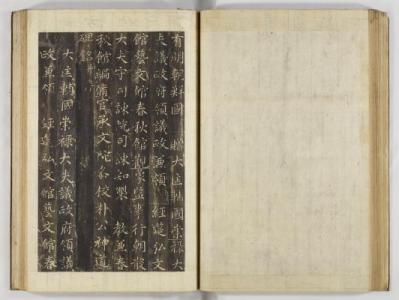 有明朝鮮國 贈大匡輔國崇祿大
夫議政府領議政兼領 經筵弘文
館藝文館春秋館觀象監事行朝散
大夫守司諫院司諫知製 教兼春
秋館編修官承文院參校朴公神道
碑銘并
大匡輔國崇祿大夫議政府領議
政兼領 經筵弘文館藝文館春